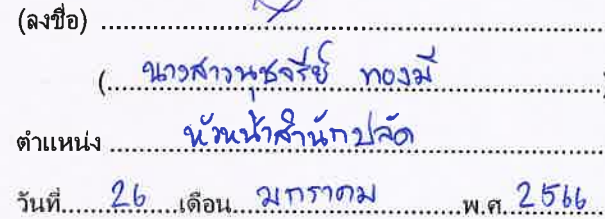 (ลงชื่อ) ............................................................
(.....นางสาวนุชจรีย์ ทองมี.....)
ตำแหน่ง ..........หัวหน้าสำนักปลัด..........
วันที่.....26.....เดือน...มกราคม...........พ.ศ. 2566